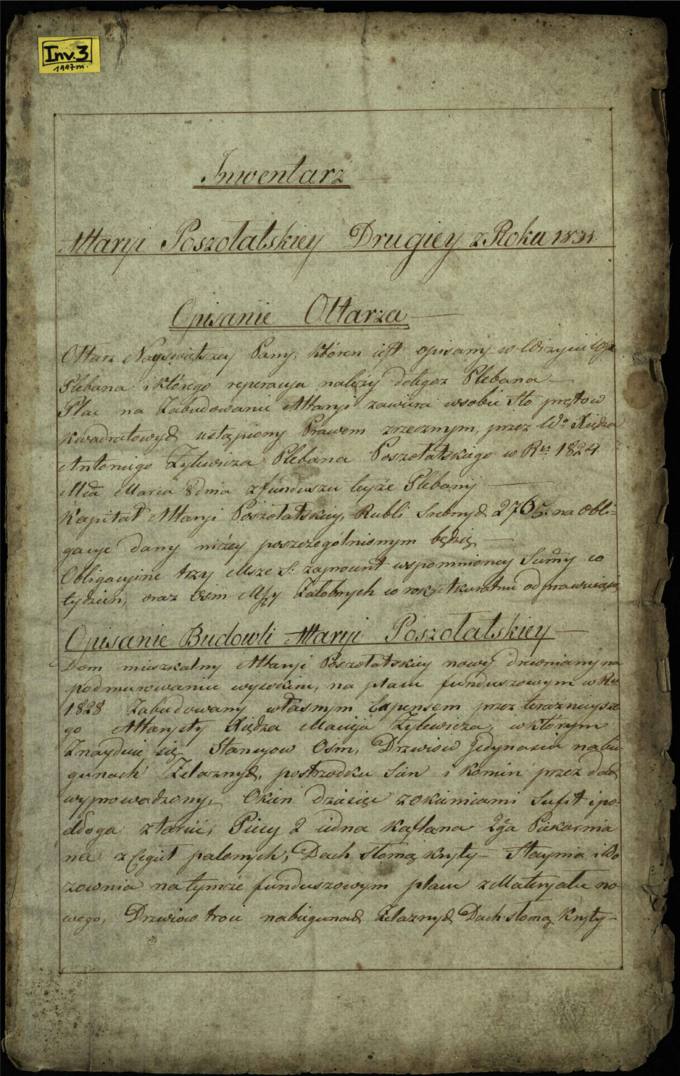 Inv. 3
1997 m.
Inwentarz
Altaryi Poszołatskiey Drugiey z Roku 1831
Opisanie Ołtarza
Ołtarz Nayświętszey Panny, któren iest opisany w Wizycie
Plebana i którego reperacya należy do tegoż Plebana
Plac na Zabudowanie Altaryi zawiera w sobie Sto prętów
kwadratowych ustąpiony Prawem zrzecznym, przez Wo Xiędza
Antoniego Żylewicza Plebana Poszołatskiego w Rku 1824
Mca Marca 8 dnia z funduszu teyże Plebanij
Kapitał Altaryi Poszołatskiey, Rubli Srebnych 2765. na Obli-
gacye dany niżey poszczególnionym będzie
Obligacyine trzy Msze S. zaprocent wspomnioney Summy co
tydzień, oraz Ośm Mszy Żałobnych w rok kwartałnie odprawuią
Opisanie Budowli Altaryi Poszołatskiey
Dom mieszkalny Altaryi Poszołatskiey nowy drewniany na
podmurowaniu wysokim, na placu funduszowym w Rku
1828 Zabudowany własnym Expensem przez teraznieysze-
go Altarzystę Xiędza Macieja Żylewicza, w którym
Znayduie się Stancyow Ośm, Drzwiow Jedynaście na bie-
gunach Żelaznych, postrodku Sień i komin przez dach
wyprowadzony, Okien dziesięć z okienicami Sufit i po-
dłoga z tarcic; Piecy 2 iedna kaflana 2ga Piekarnia
na z Cegieł palonych; Dach słomą kryty - Staynia i Wo
zownia na tymże funduszowym placu z Materyału no-
wego, Drzwiow troie na biegunach Żelaznych Dach słomą kryty -